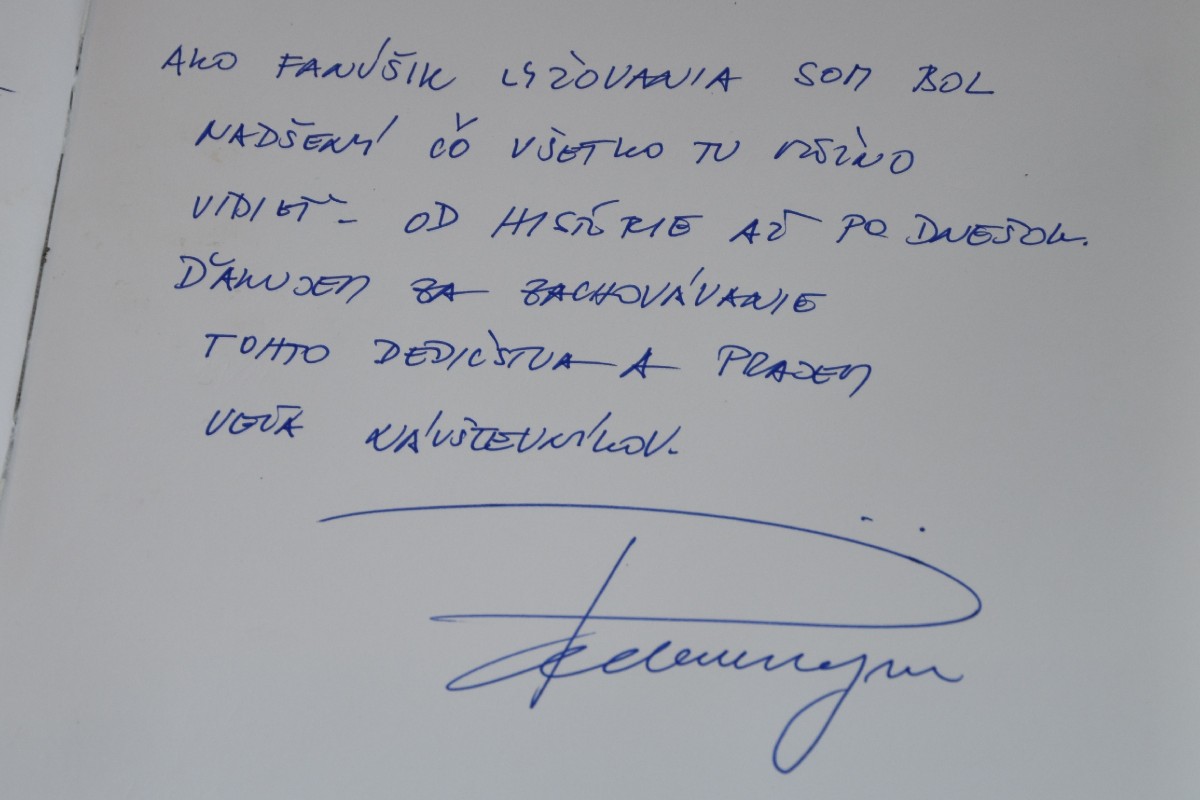 AKO FANÚŠIK LYŽOVANIA SOM BOL
NADŠENÝ ČO VŠETKO TU MOŽNO
VIDIEŤ - OD HISTÓRIE AŽ PO DNEŠOK.
ĎAKUJEM ZA ZACHOVÁVANIE
TOHTO DEDIČSTVA A PRAJEM
VEĽA NÁVŠTEVNÍKOV.